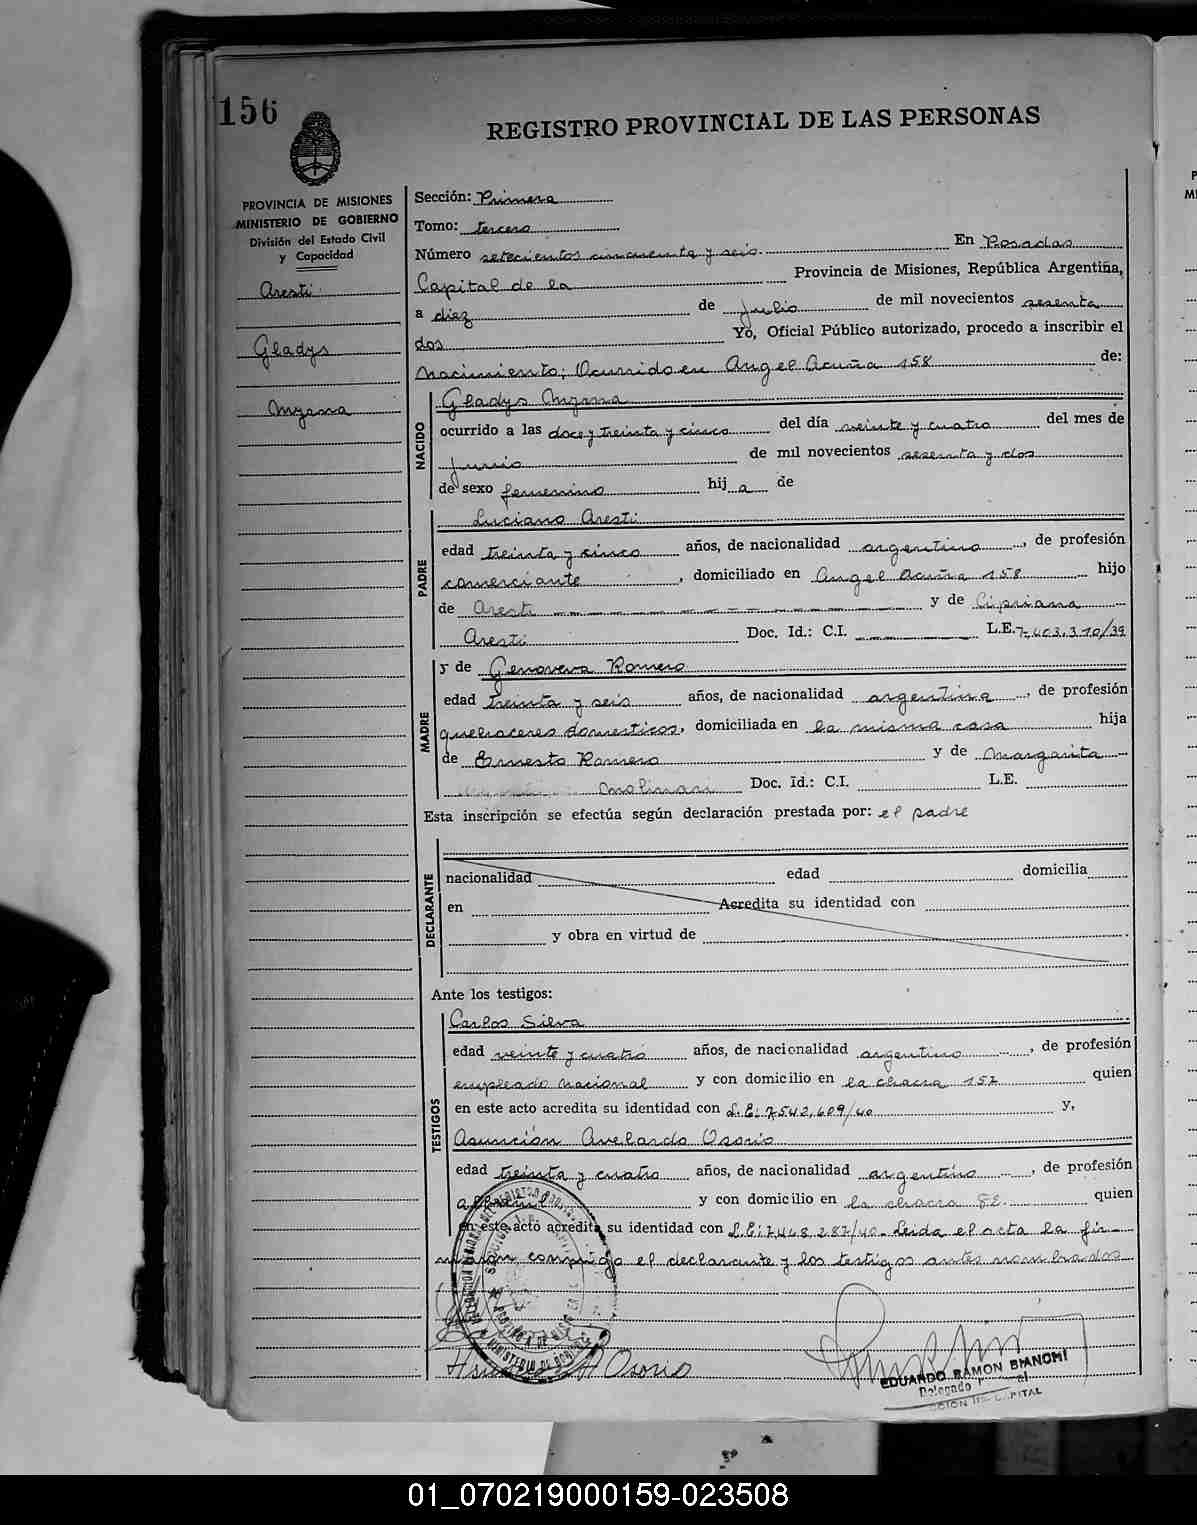 156
REGISTRO PROVINCIAL DE LAS PERSONAS
PROVINCIA DE MISIONES
MINISTERIO DE GOBIERNO
División del Estado Civil
y Capacidad
Aresti
Gladys
Sección: Primera
Tomo: tercero
Número setecientos cincuenta y seis. En Posadas
Capital de la Provincia de Misiones, República Argentina,
a diez de Julio de mil novecientos sesenta
dos Yo, Oficial Público autorizado, procedo a inscribir el
nacimiento; Ocurrido en Angel Acuña 158 de:
NACIDO
Gladys
ocurrido a las doce y treinta y cinco del día veinte y cuatro del mes de
Junio de mil novecientos sesenta y dos
de sexo femenino hij a de
PADRE
Luciano Aresti
edad treinta y cinco años, de nacionalidad argentino, de profesión
comerciante, domiciliado en Angel Acuña 158 hijo
de Aresti y de Cipriana
Aresti Doc. Id.: C.I. L.E. 7.403.310/39
MADRE
y de Genoveva Romero
edad treinta y seis años, de nacionalidad argentina, de profesión
quehaceres domesticos, domiciliada en la misma casa hija
de Ernesto Romero y de Margarita
Molinari Doc. Id.: C.I. L.E.
Esta inscripción se efectúa según declaración prestada por: el padre
DECLARANTE
nacionalidad edad domicilia
en Acredita su identidad con
y obra en virtud de
Ante los testigos:
TESTIGOS
Carlos Silva
edad veinte y cuatro años, de nacionalidad argentino, de profesión
empleado nacional y con domicilio en la chacra 157 quien
en este acto acredita su identidad con L.E: 7.542.609/40 y,
Asunción Avelardo Osorio
edad treinta y cuatro años, de nacionalidad argentino, de profesión
albañil y con domicilio en la chacra 82 quien
en este acto acredita su identidad con L.E: 7.468.287/40. Leida el acta la fir
maron conmigo el declarante y los testigos antes nombrados
Osorio
EDUARDO RAMON BIANCHI
Delegado
CAPITAL
01_070219000159-023508